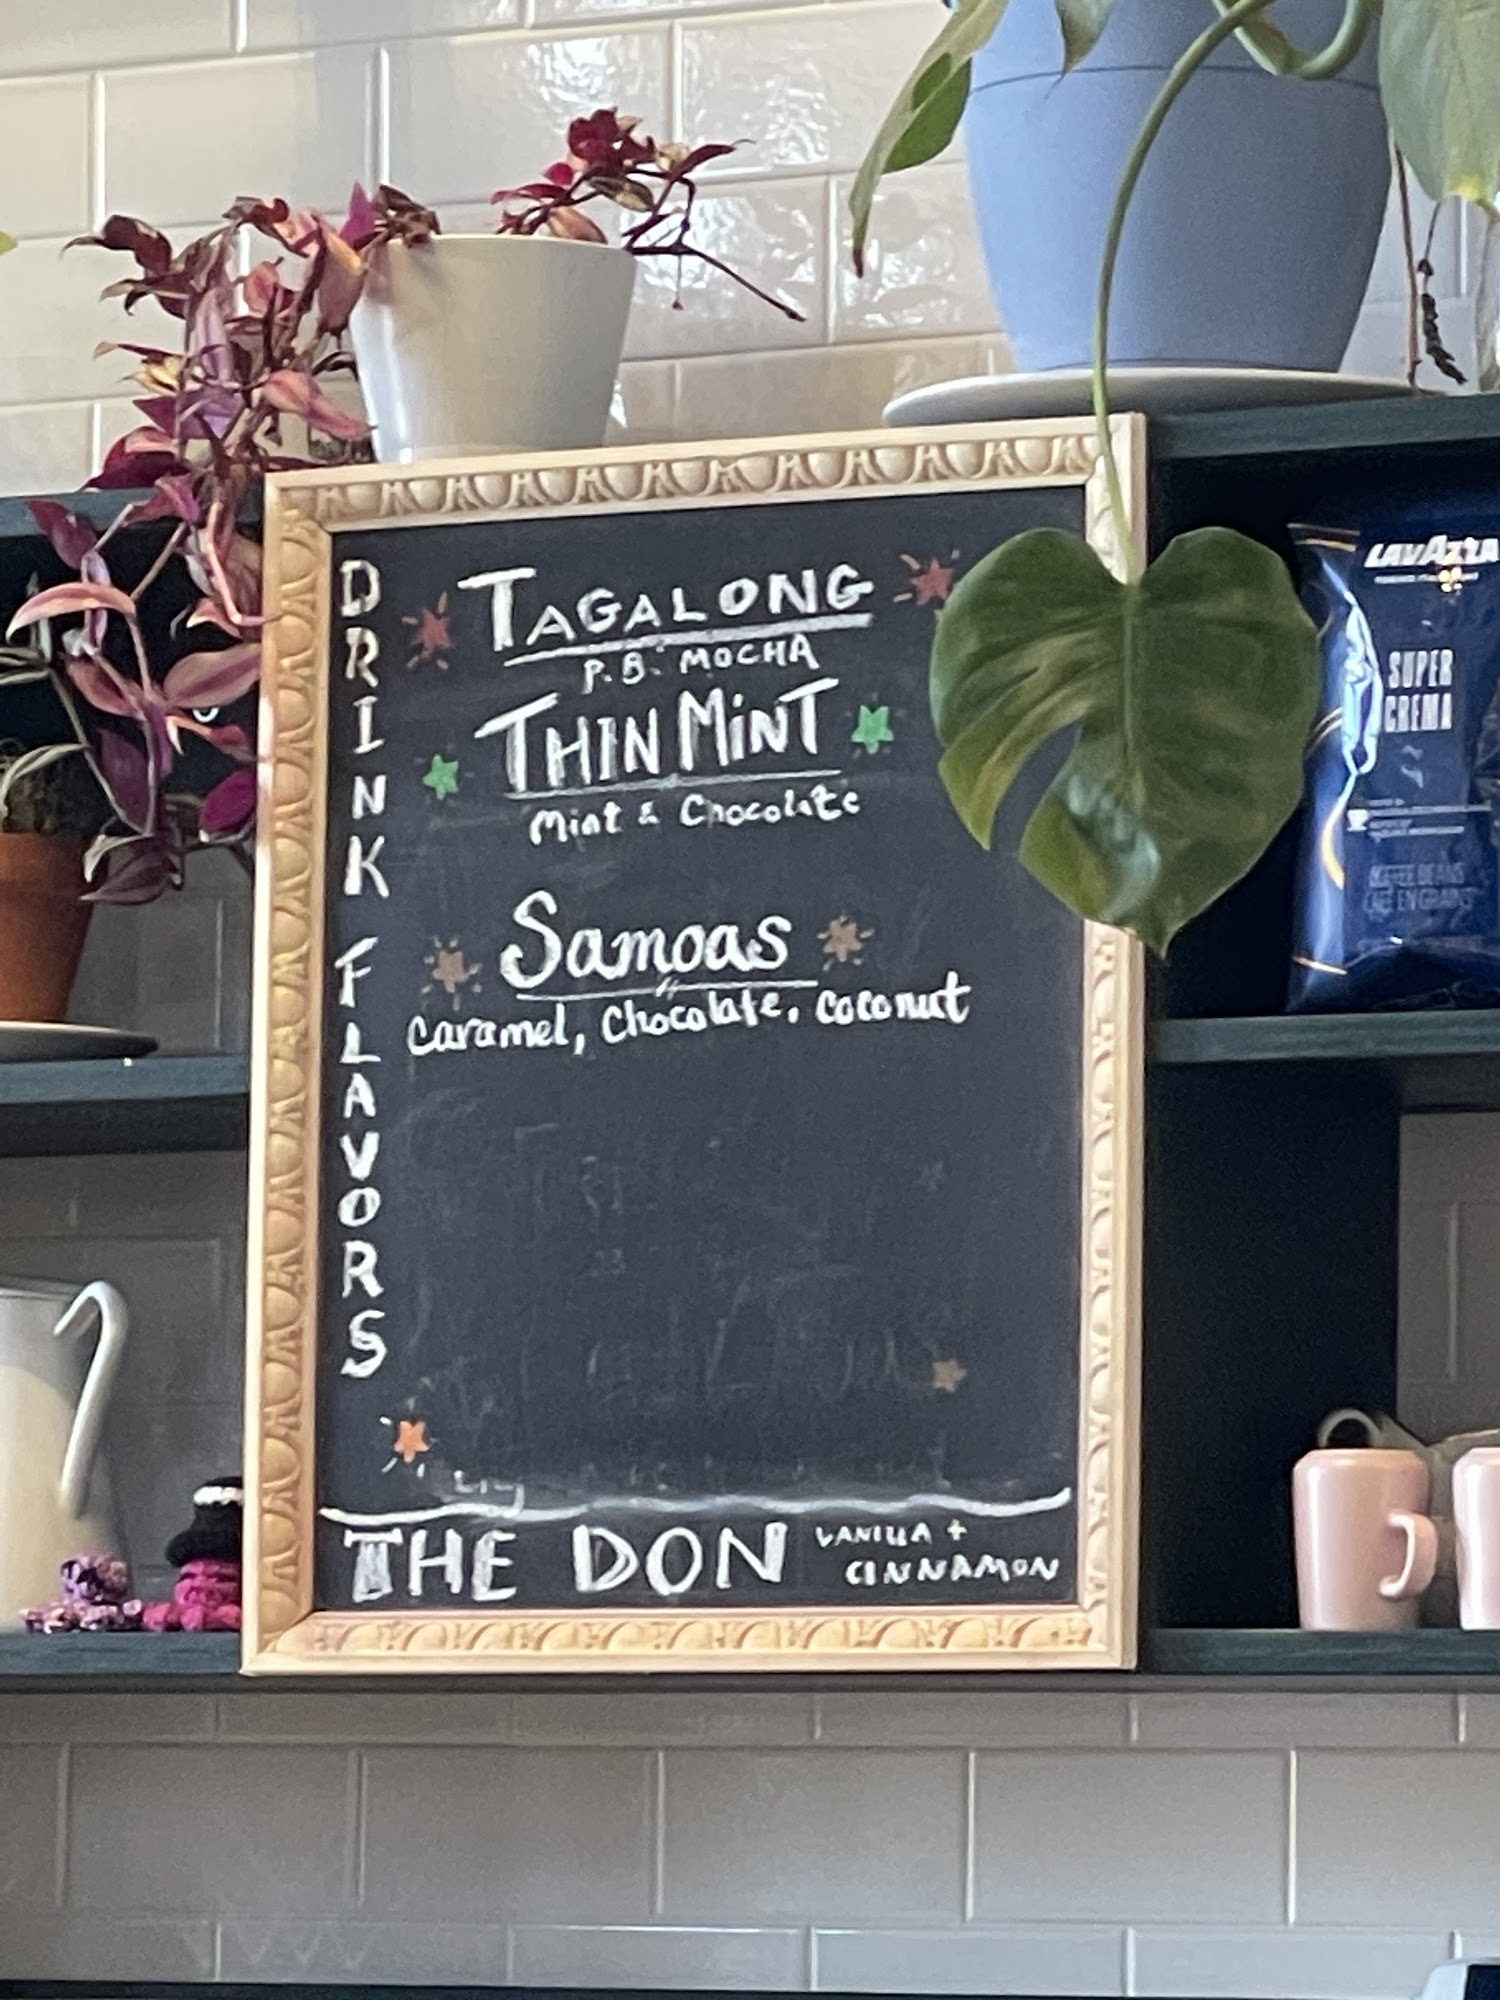 DRINK FLAVORS
TAGALONG
P.B. MOCHA
THIN MiNT
Mint & Chocolate
Samoas
caramel, Chocolate, coconut
THE DON
VANILLA +
CINNAMON
LAVAZZA
SUPER
CREMA
COFFEE BEANS
CAFÉ EN GRAINS